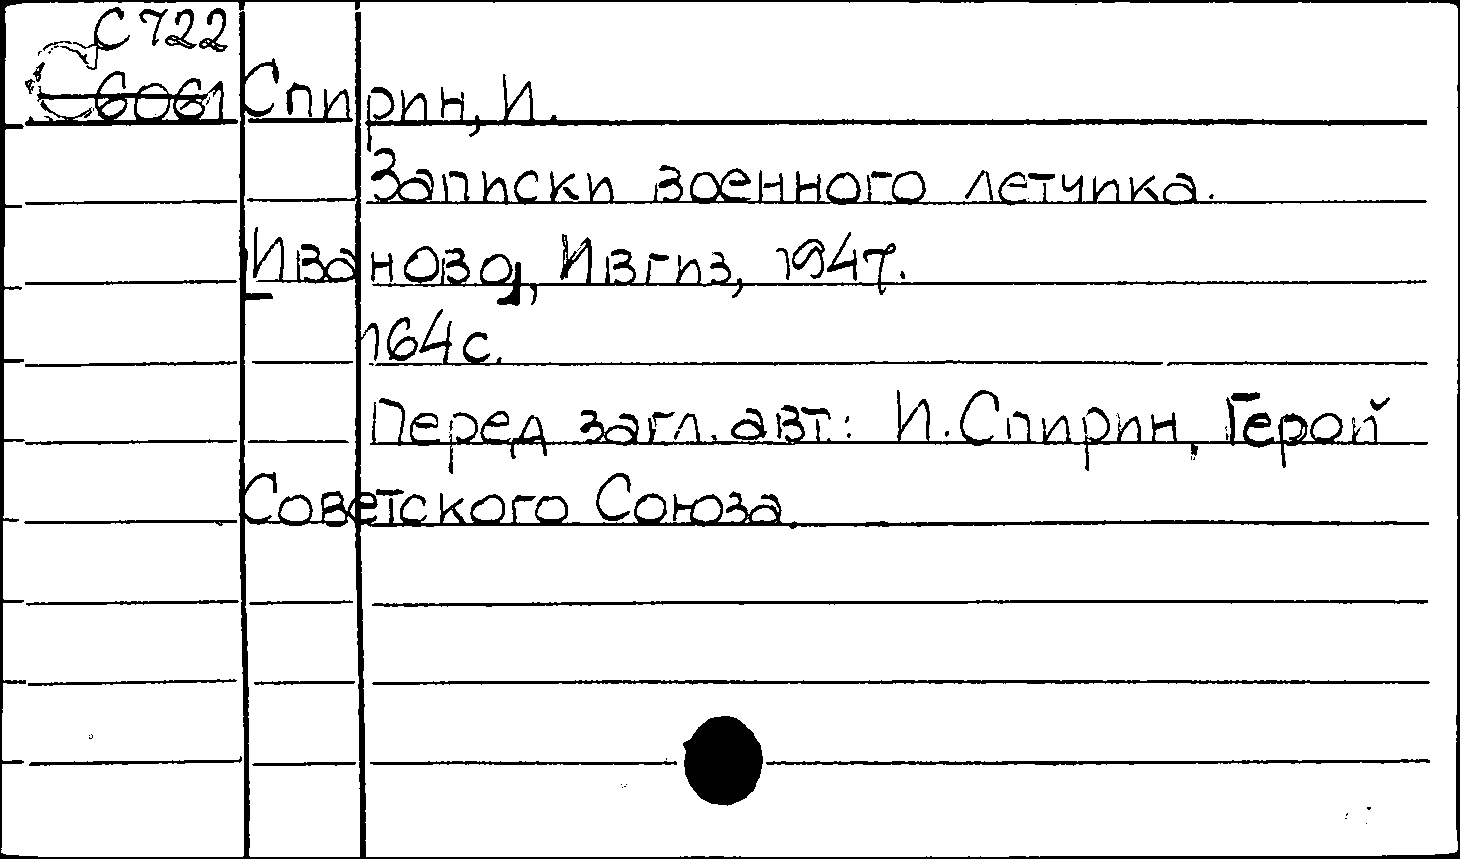 С722
С6061 Спирин, И.
Записки военного летчика.
Иваново, Ивгиз, 1947.
164с.
Перед загл. авт.: И. Спирин, Герой
Советского Союза.